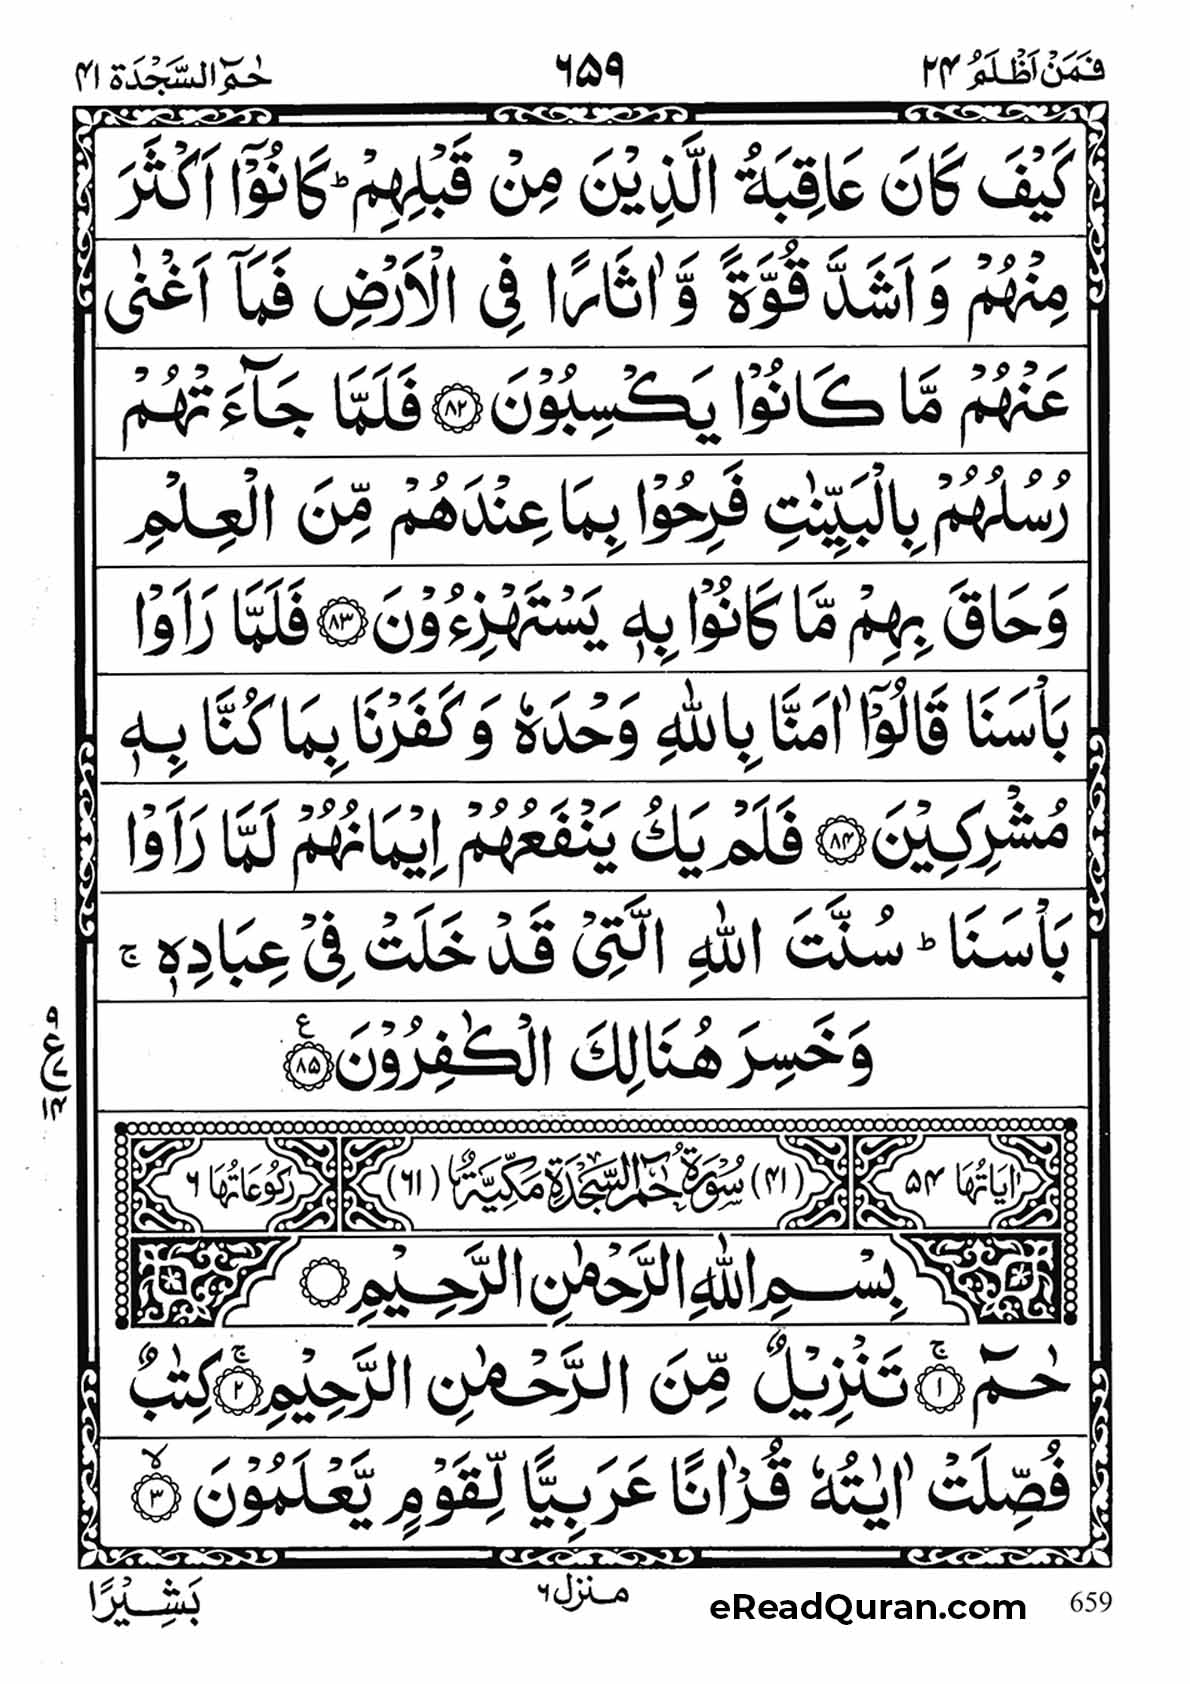 فَمَنْ اَظْلَمُ ۲۴
۶۵۹
حٰمٓ السَّجْدَة ۴۱
كَيْفَ كَانَ عَاقِبَةُ الَّذِيْنَ مِنْ قَبْلِهِمْ ؕ كَانُوْۤا اَكْثَرَ
مِنْهُمْ وَ اَشَدَّ قُوَّةً وَّ اٰثَارًا فِي الْاَرْضِ فَمَاۤ اَغْنٰى
عَنْهُمْ مَّا كَانُوْا يَكْسِبُوْنَ ﴿۸۲﴾ فَلَمَّا جَآءَتْهُمْ
رُسُلُهُمْ بِالْبَيِّنٰتِ فَرِحُوْا بِمَا عِنْدَهُمْ مِّنَ الْعِلْمِ
وَ حَاقَ بِهِمْ مَّا كَانُوْا بِهٖ يَسْتَهْزِءُوْنَ ﴿۸۳﴾ فَلَمَّا رَاَوْا
بَاْسَنَا قَالُوْۤا اٰمَنَّا بِاللّٰهِ وَحْدَهٗ وَ كَفَرْنَا بِمَا كُنَّا بِهٖ
مُشْرِكِيْنَ ﴿۸۴﴾ فَلَمْ يَكُ يَنْفَعُهُمْ اِيْمَانُهُمْ لَمَّا رَاَوْا
بَاْسَنَا ؕ سُنَّتَ اللّٰهِ الَّتِيْ قَدْ خَلَتْ فِيْ عِبَادِهٖ ۚ
وَ خَسِرَ هُنَالِكَ الْكٰفِرُوْنَ ﴿۸۵﴾ ع
۹
ع
۱۴
اٰيَاتُهَا ۵۴
(۴۱) سُوْرَةُ حٰمٓ السَّجْدَةِ مَكِّيَّةٌ (۶۱)
رُكُوْعَاتُهَا ۶
بِسْمِ اللّٰهِ الرَّحْمٰنِ الرَّحِيْمِ
حٰمٓ ﴿۱﴾ۚ تَنْزِيْلٌ مِّنَ الرَّحْمٰنِ الرَّحِيْمِ ﴿۲﴾ۚ كِتٰبٌ
فُصِّلَتْ اٰيٰتُهٗ قُرْاٰنًا عَرَبِيًّا لِّقَوْمٍ يَّعْلَمُوْنَ ﴿۳﴾ۙ
بَشِيْرًا
منزل ۶
eReadQuran.com
659